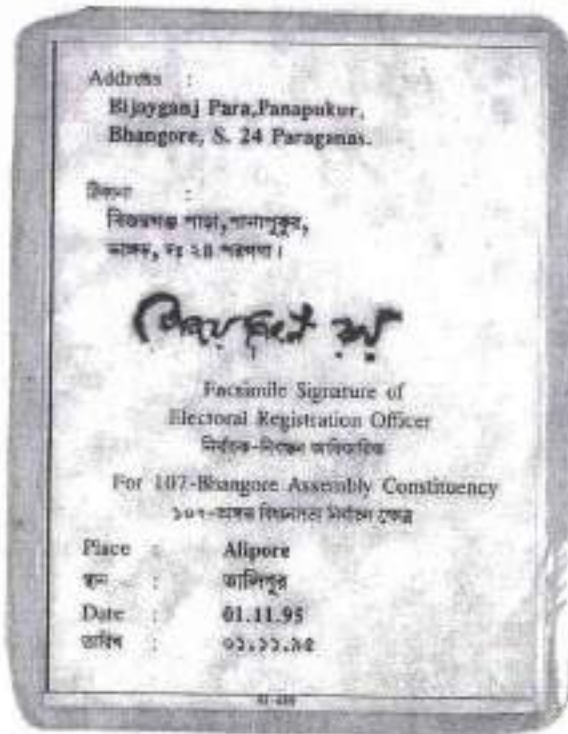 Address :
Bijoyganj Para,Panapukur,
Bhangore, S. 24 Paraganas.
ঠিকানা :
বিজয়গঞ্জ পাড়া,পানাপুকুর,
ভাঙ্গড়, দঃ ২৪ পরগণা।
Facsimile Signature of
Electoral Registration Officer
নির্বাচক-নিবন্ধন আধিকারিক
For 107-Bhangore Assembly Constituency
১০৭-ভাঙ্গড় বিধানসভা নির্বাচন ক্ষেত্র
Place : Alipore
স্থান : আলিপুর
Date : 01.11.95
তারিখ : ০১.১১.৯৫